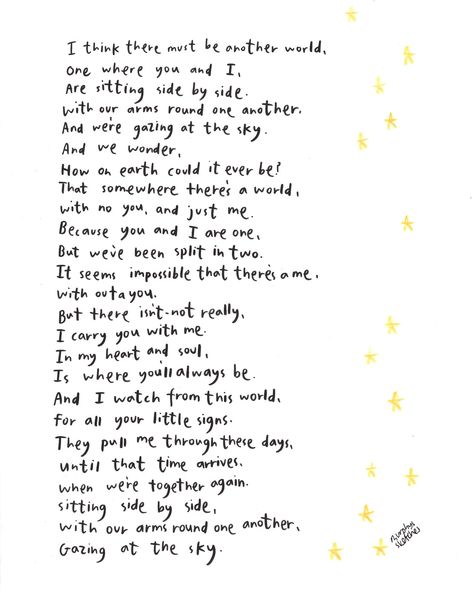 I think there must be another world,
One where you and I,
Are sitting side by side.
with our arms round one another.
And we're gazing at the sky.
And we wonder,
How on earth could it ever be?
That somewhere there's a world,
with no you, and just me.
Because you and I are one,
But we've been split in two.
It seems impossible that there's a me,
with out a you.
But there isn't-not really,
I carry you with me.
In my heart and soul,
Is where you'll always be.
And I watch from this world,
for all your little signs.
They pull me through these days,
until that time arrives.
when we're together again.
sitting side by side,
with our arms round one another,
Gazing at the sky.
Murphys
sketches